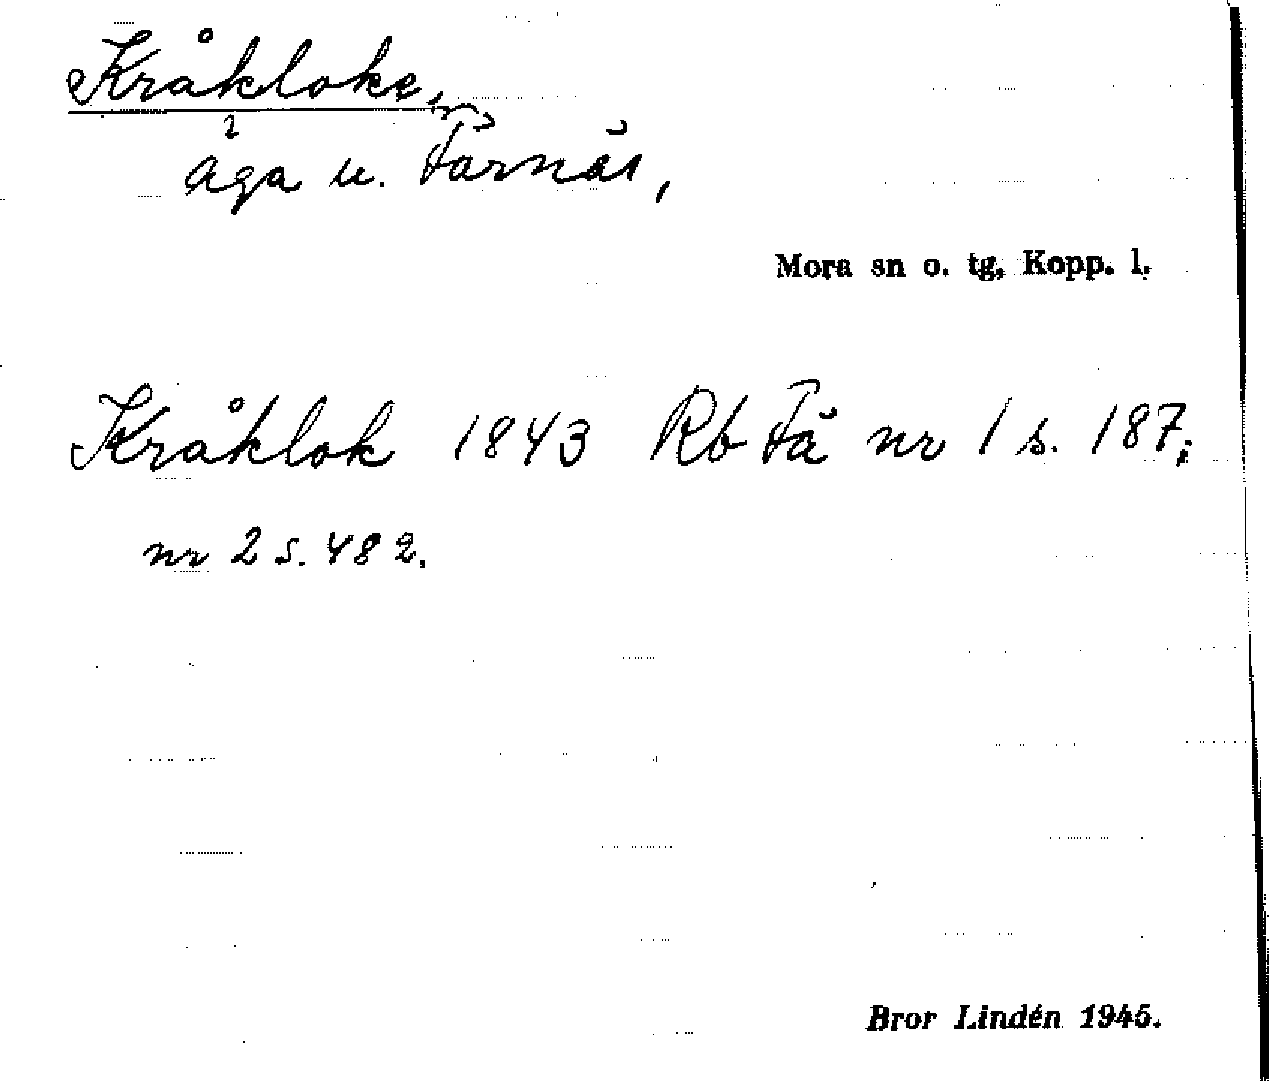 Kråkloke,
åga u. Färnäs,
Mora sn o. tg, Kopp. l.
Kråklok 1843 Rb Fä nr 1 s. 187;
nr 2 s. 482.
Bror Lindén 1945.